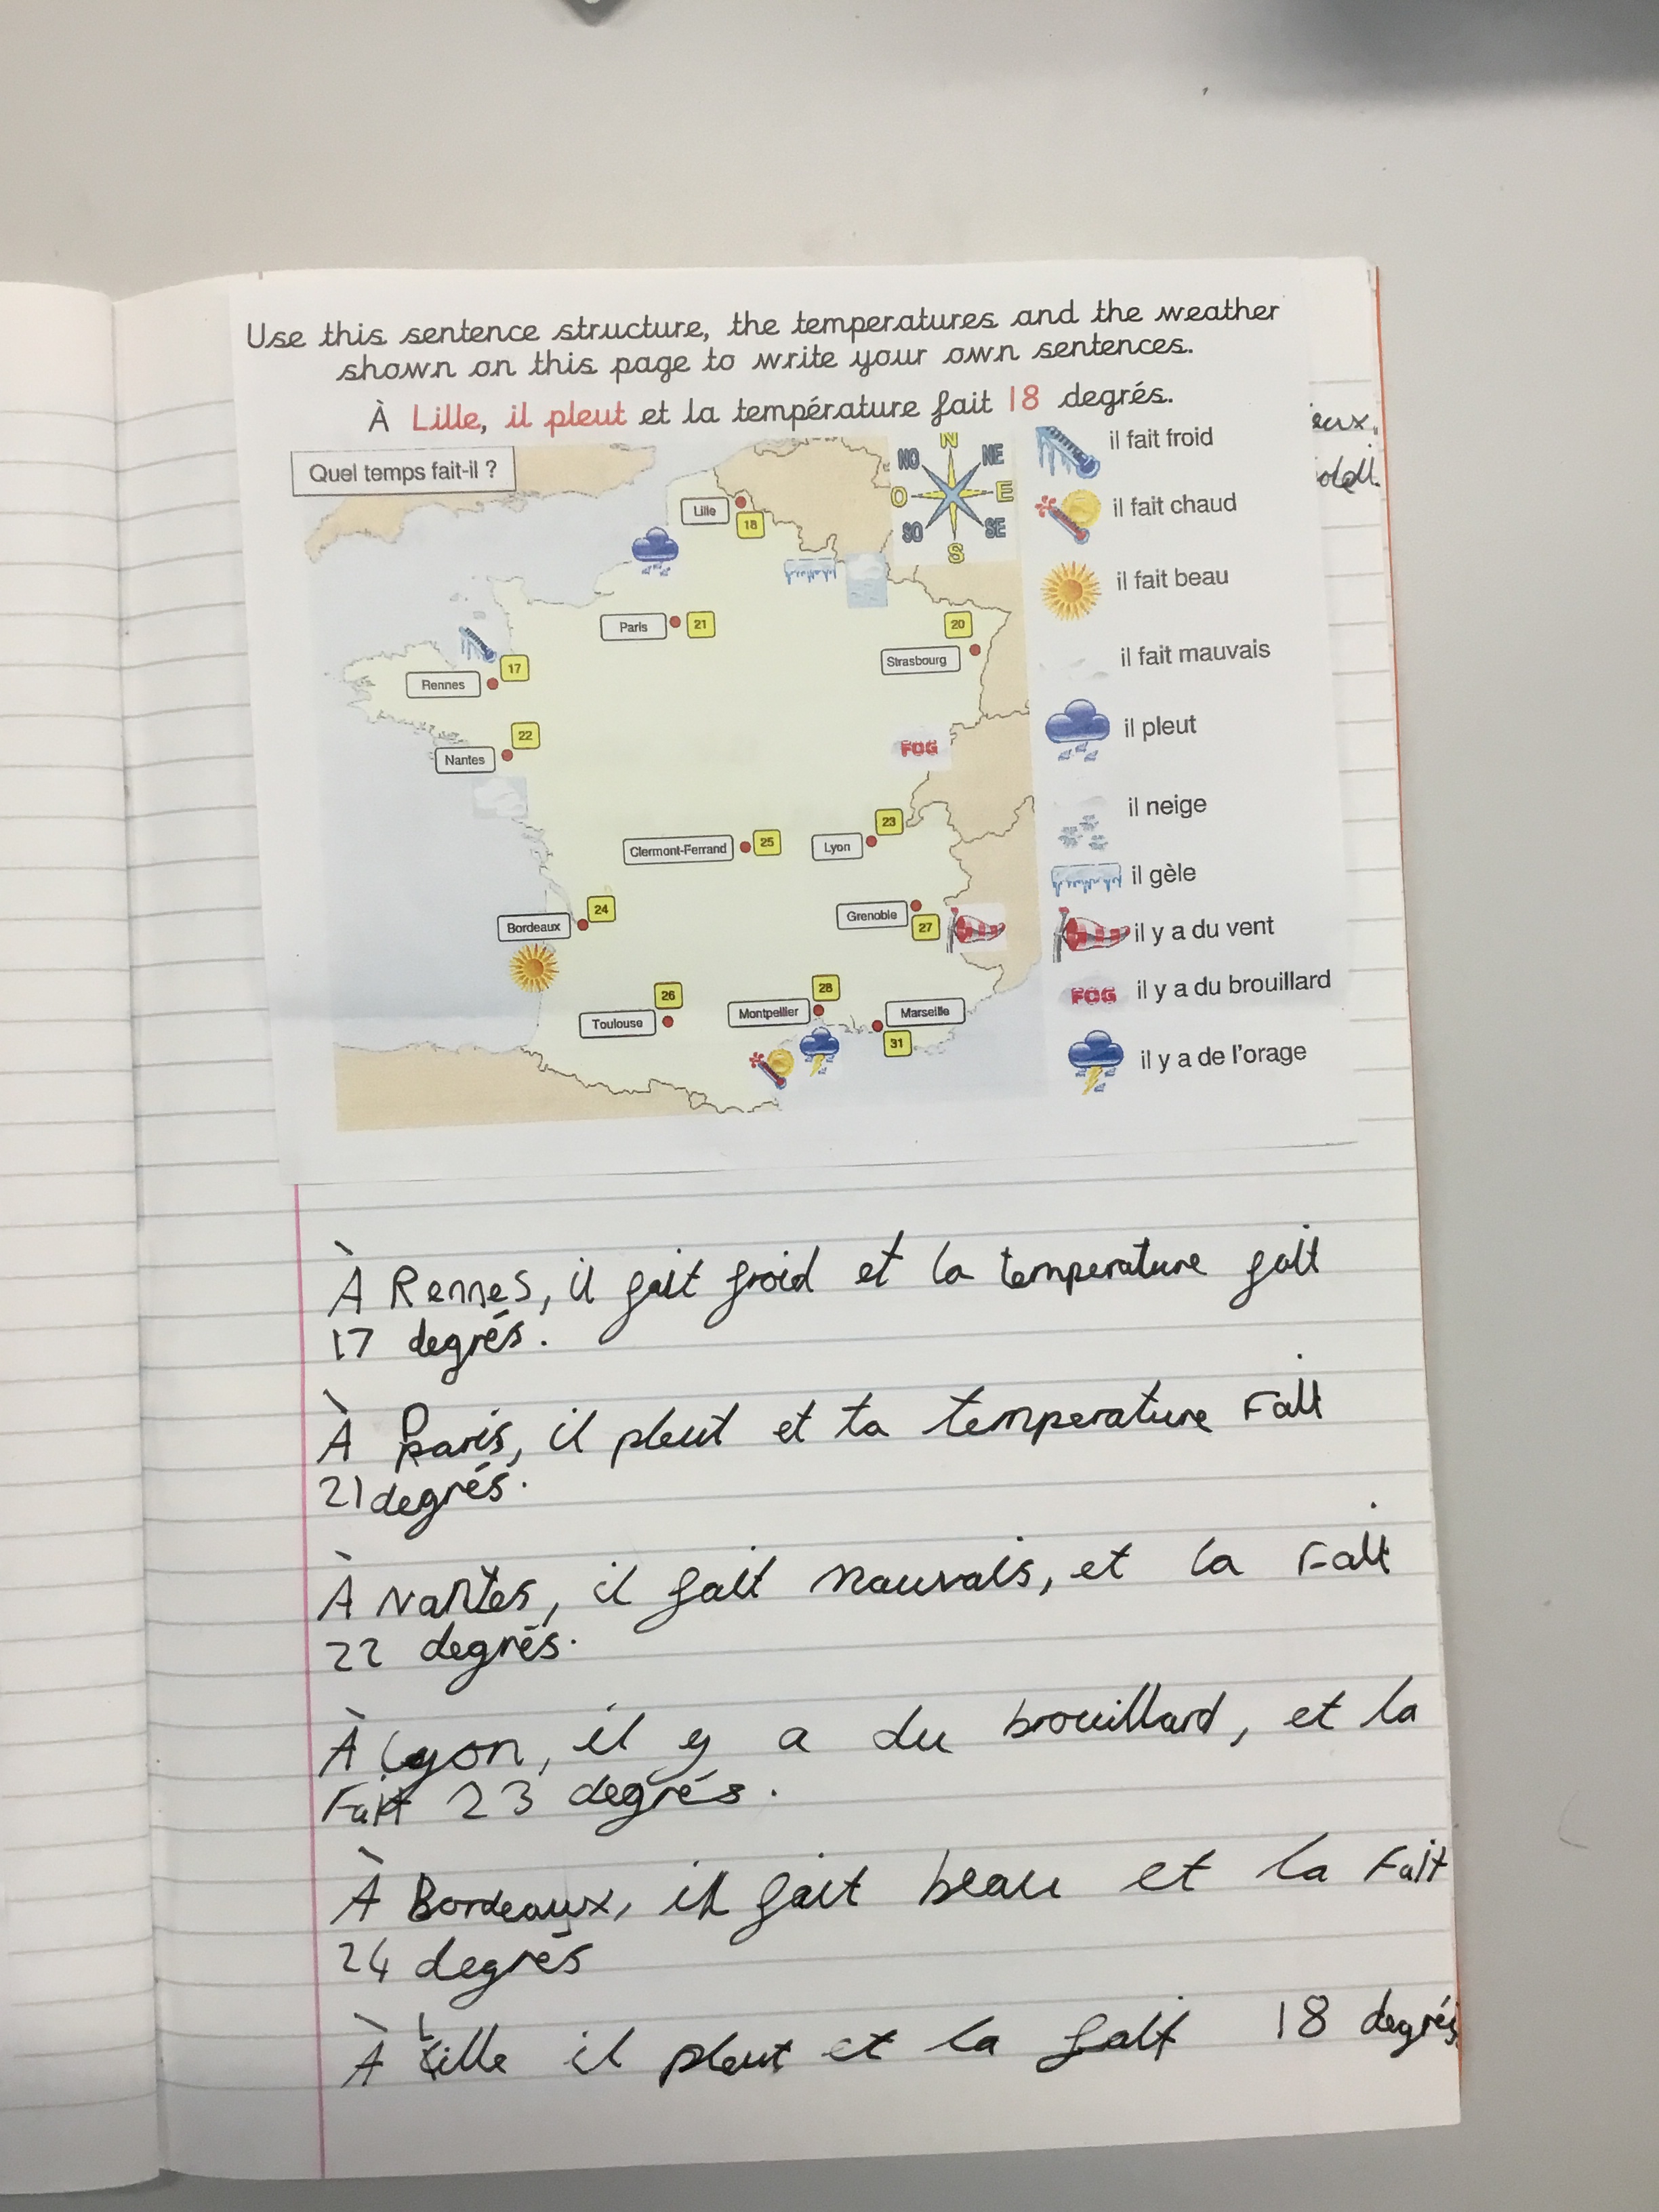 Use this sentence structure, the temperatures and the weather
shown on this page to write your own sentences.
À Lille, il pleut et la température fait 18 degrés.
eux.
oleil.
Quel temps fait-il ?
N
NO
NE
O
E
SO
SE
S
il fait froid
il fait chaud
il fait beau
il fait mauvais
il pleut
il neige
il gèle
il y a du vent
FOG il y a du brouillard
il y a de l'orage
Lille
18
Paris
21
20
Strasbourg
17
Rennes
22
Nantes
FOG
23
Clermont-Ferrand
25
Lyon
24
Bordeaux
Grenoble
27
26
28
Toulouse
Montpellier
Marseille
31
À Rennes, il fait froid et la temperature fait
17 degrés.
À Paris, il pleut et ta temperature Fait
21 degrés.
À Nantes, il fait mauvais, et la Fait
22 degrés.
À Lyon, il y a du brouillard, et la
Fait 23 degrés.
À Bordeaux, il fait beau et la Fait
24 degrés
À Lille il pleut et la fait 18 degrés.